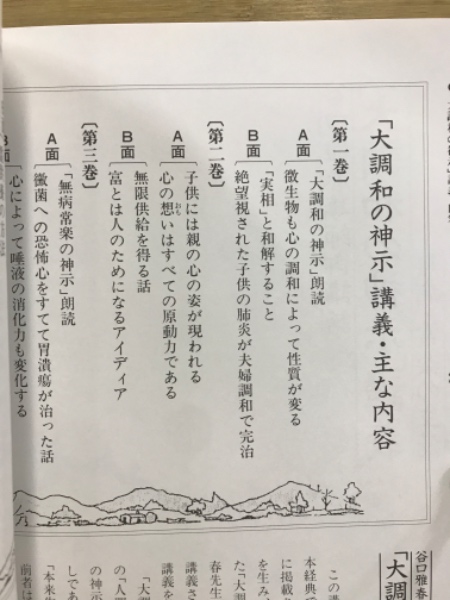 「大調和の神示」講義・主な内容
〔第一巻〕
A面
「大調和の神示」朗読
微生物も心の調和によって性質が変る
B面
「実相」と和解すること
絶望視された子供の肺炎が夫婦調和で完治
〔第二巻〕
A面
子供には親の心の姿が現われる
心の想いはすべての原動力である
おも
B面
無限供給を得る話
富とは人のためになるアイディア
〔第三巻〕
A面
「無病常楽の神示」朗読
黴菌への恐怖心をすてて胃潰瘍が治った話
B面
心によって唾液の消化力も変化する
谷口雅春
「大調
この講
本経典の
に掲載さ
を生み
た「大調
春先生
講義さ
講義を
「大調
の「人間
の神示
しであ
「本来生
前者は